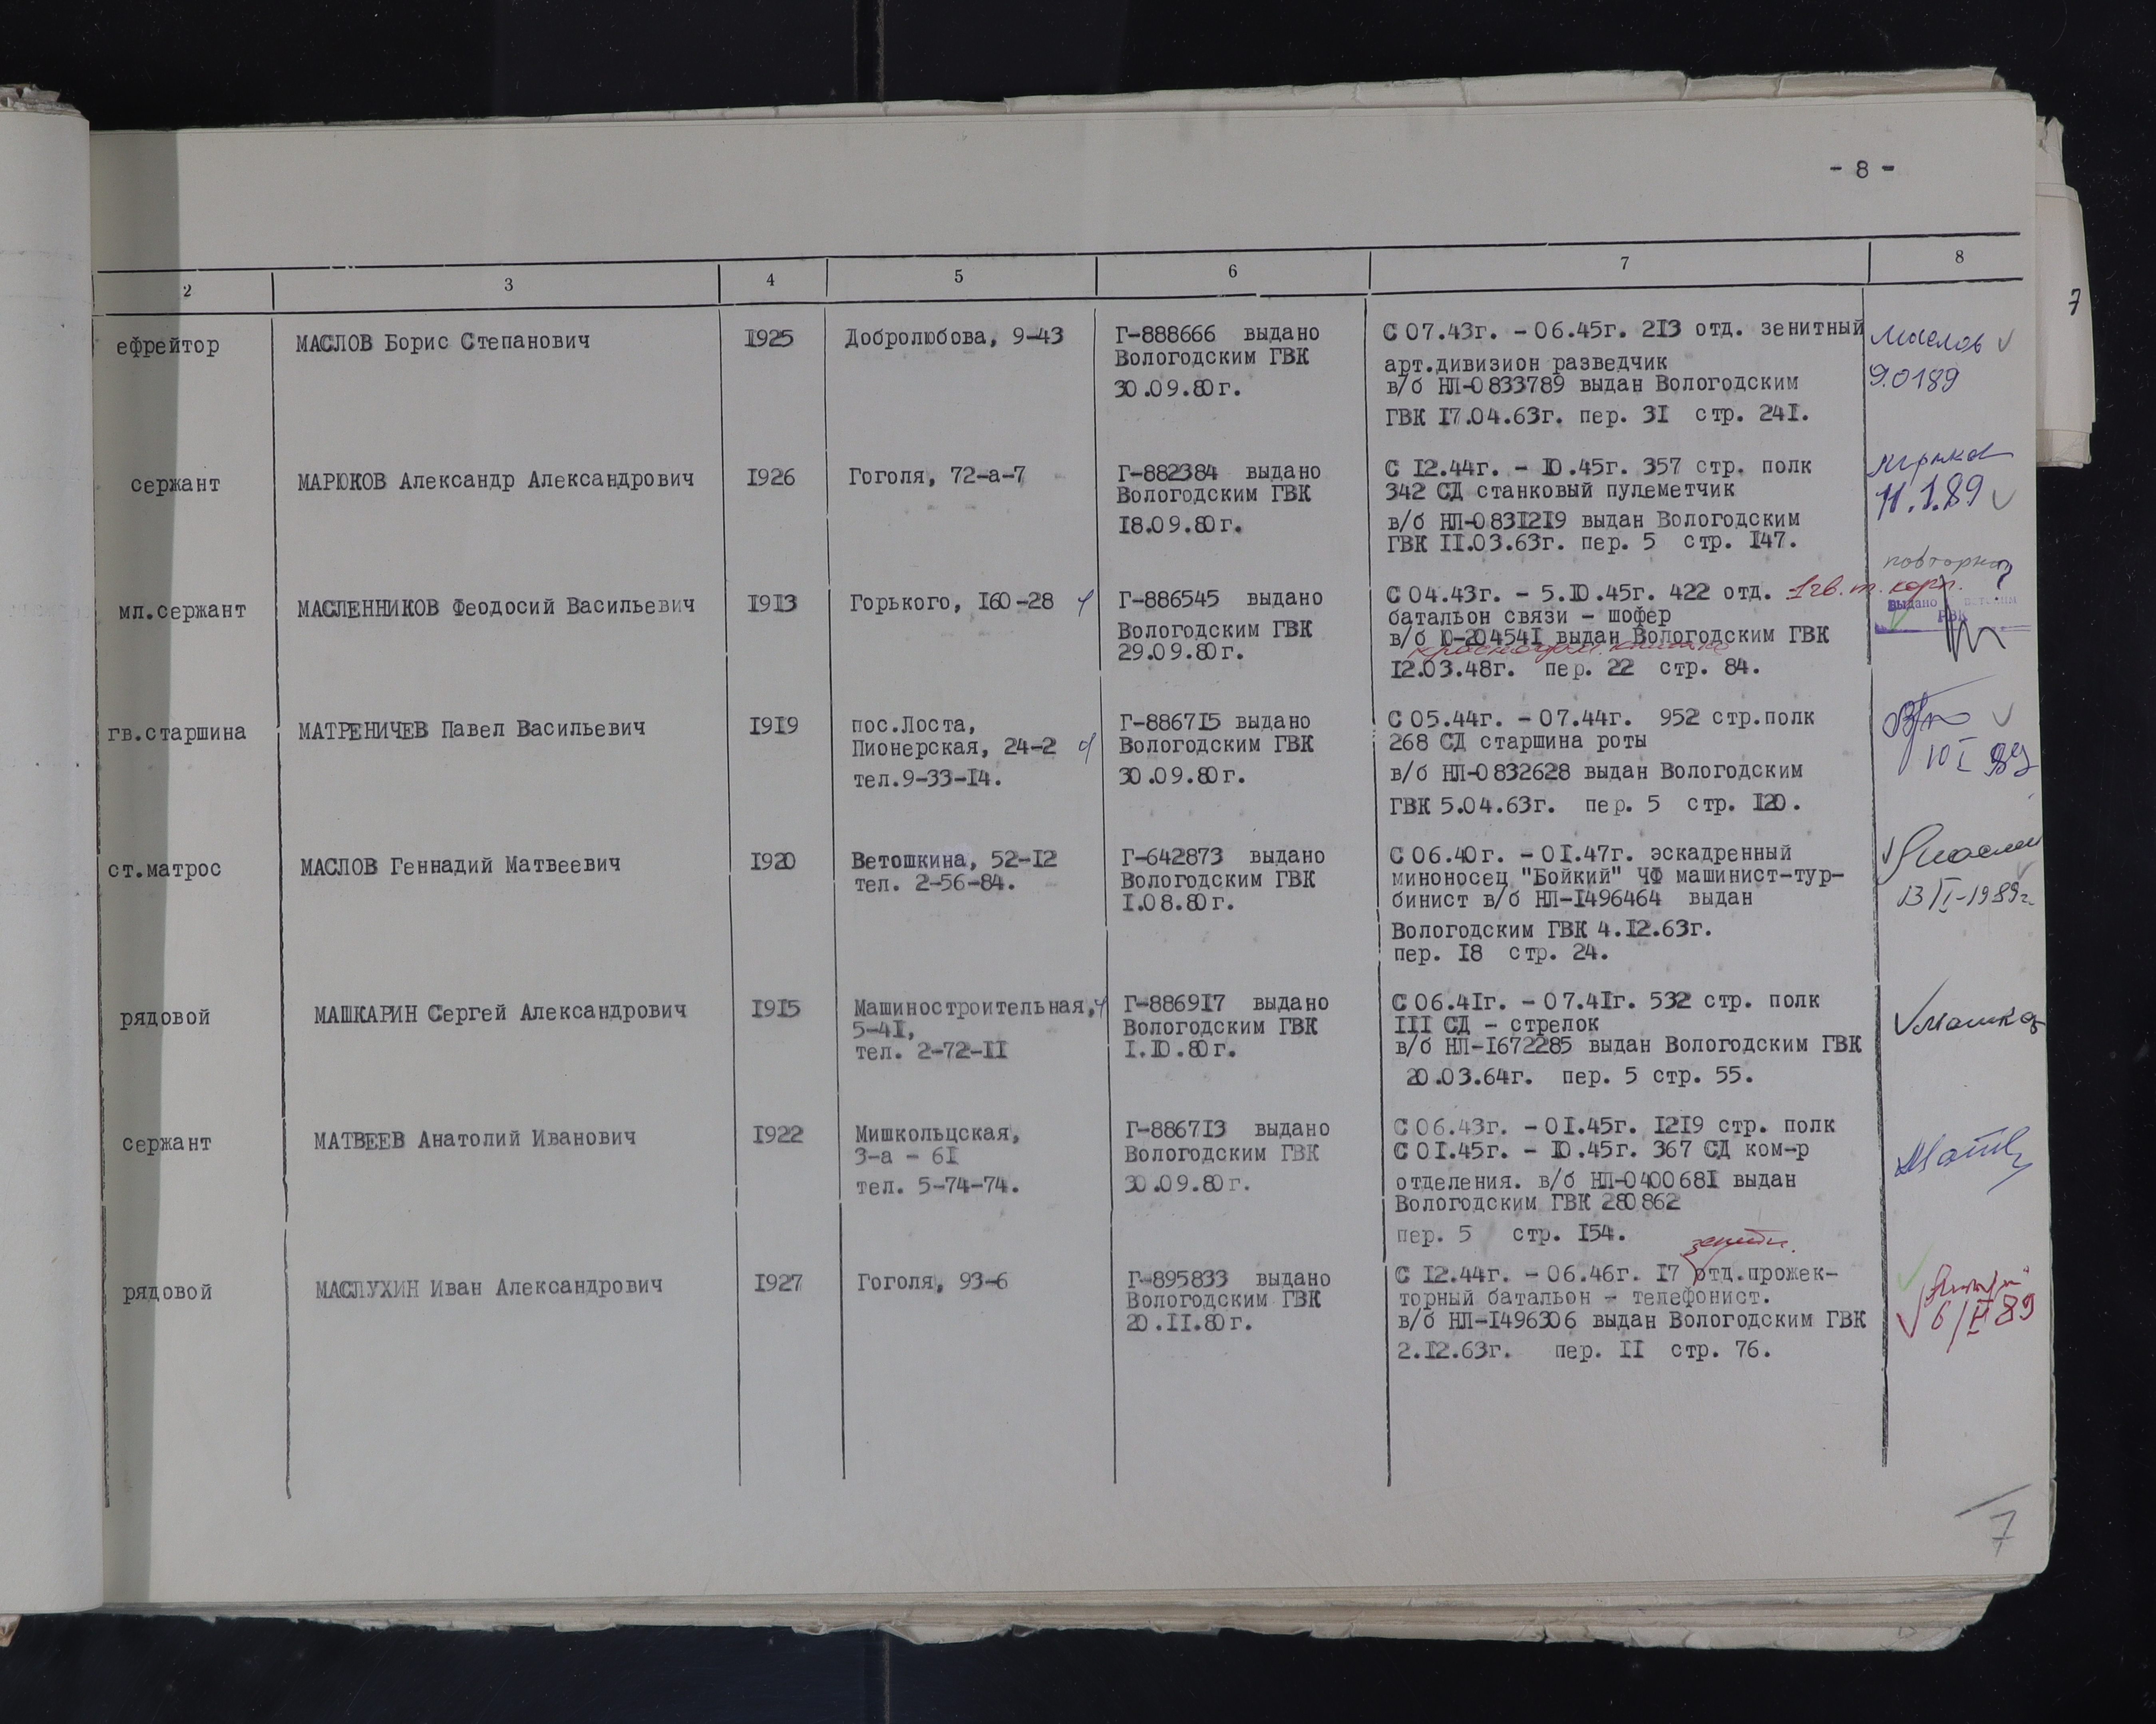 - 8 -
7
2 3 4 5 6 7 8
ефрейтор
МАСЛОВ Борис Степанович
1925
Добролюбова, 9-43
Г-888666 выдано
Вологодским ГВК
30.09.80г.
С 07.43г. - 06.45г. 213 отд. зенитный
арт.дивизион разведчик
в/б НЛ-0833789 выдан Вологодским
ГВК 17.04.63г. пер. 31 стр. 241.
Маслов
9.0189
сержант
МАРЮКОВ Александр Александрович
1926
Гоголя, 72-а-7
Г-882384 выдано
Вологодским ГВК
18.09.80г.
С 12.44г. - 10.45г. 357 стр. полк
342 СД станковый пулеметчик
в/б НЛ-0831219 выдан Вологодским
ГВК 11.03.63г. пер. 5 стр. 147.
11.1.89
мл.сержант
МАСЛЕННИКОВ Феодосий Васильевич
1913
Горького, 160-28
Г-886545 выдано
Вологодским ГВК
29.09.80г.
С 04.43г. - 5.10.45г. 422 отд. 1 гв. т. корп.
батальон связи - шофер
в/б Ю-204541 выдан Вологодским ГВК
12.03.48г. пер. 22 стр. 84.
повторно
выдано
РВК
гв.старшина
МАТРЕНИЧЕВ Павел Васильевич
1919
пос.Лоста,
Пионерская, 24-2
тел.9-33-14.
Г-886715 выдано
Вологодским ГВК
30.09.80г.
С 05.44г. - 07.44г. 952 стр.полк
268 СД старшина роты
в/б НЛ-0832628 выдан Вологодским
ГВК 5.04.63г. пер. 5 стр. 120.
10 I 89
ст.матрос
МАСЛОВ Геннадий Матвеевич
1920
Ветошкина, 52-12
тел. 2-56-84.
Г-642873 выдано
Вологодским ГВК
1.08.80г.
С 06.40г. - 01.47г. эскадренный
миноносец "Бойкий" ЧФ машинист-тур-
бинист в/б НЛ-1496464 выдан
Вологодским ГВК 4.12.63г.
пер. 18 стр. 24.
13/I-1989г.
рядовой
МАШКАРИН Сергей Александрович
1915
Машиностроительная,
5-41,
тел. 2-72-11
Г-886917 выдано
Вологодским ГВК
1.10.80г.
С 06.41г. - 07.41г. 532 стр. полк
111 СД - стрелок
в/б НЛ-1672285 выдан Вологодским ГВК
20.03.64г. пер. 5 стр. 55.
сержант
МАТВЕЕВ Анатолий Иванович
1922
Мишкольцская,
3-а - 61
тел. 5-74-74.
Г-886713 выдано
Вологодским ГВК
30.09.80г.
С 06.43г. - 01.45г. 1219 стр. полк
С 01.45г. - 10.45г. 367 СД ком-р
отделения. в/б НЛ-0400681 выдан
Вологодским ГВК 280862
пер. 5 стр. 154.
рядовой
МАСЛУХИН Иван Александрович
1927
Гоголя, 93-6
Г-895833 выдано
Вологодским ГВК
20.11.80г.
зенитн.
С 12.44г. - 06.46г. 17 отд.прожек-
торный батальон - телефонист.
в/б НЛ-1496306 выдан Вологодским ГВК
2.12.63г. пер. 11 стр. 76.
6/II 89
7